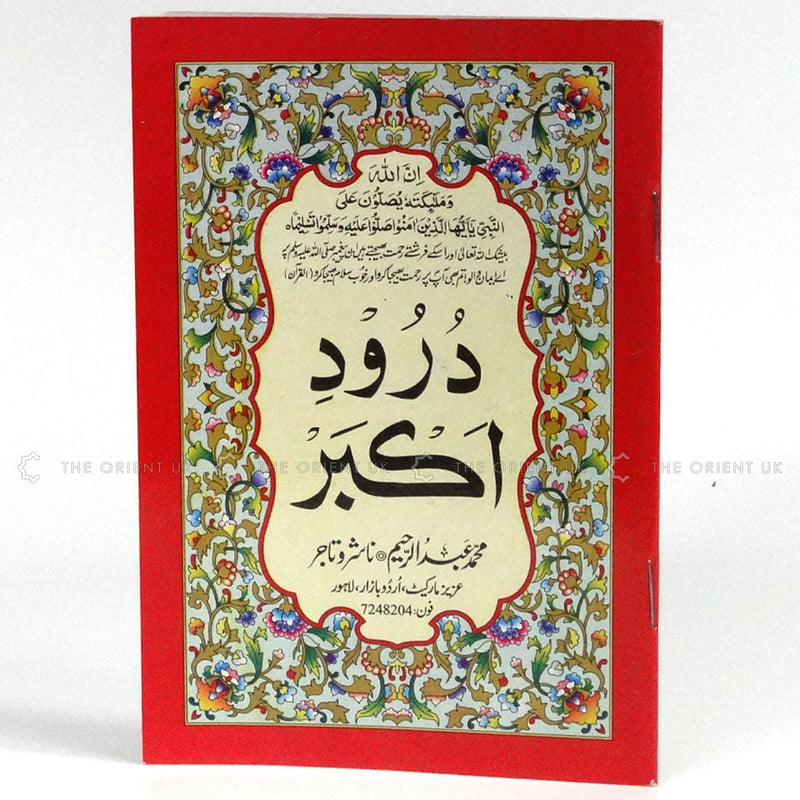 اِنَّ اللهَ
وَمَلٰٓئِكَتَهٗ يُصَلُّوْنَ عَلَى
النَّبِىِّ يٰٓاَيُّهَا الَّذِيْنَ اٰمَنُوْا صَلُّوْا عَلَيْهِ وَسَلِّمُوْا تَسْلِيْمًا
بیشک اللہ تعالیٰ اور اسکے فرشتے رحمت بھیجتے ہیں ان پیغمبر صلی اللہ علیہ وسلم پر
اے ایمان والو تم بھی آپؐ پر رحمت بھیجا کرو اور خوب سلام بھیجا کرو (القرآن)
دُرُوْدِ
اَكْبَرْ
محمد عبدُالرحیم ناشر و تاجر
عزیز مارکیٹ، اُردو بازار، لاہور
فون: 7248204
THE ORIENT UK THE ORIENT UK THE ORIENT UK THE ORIENT UK